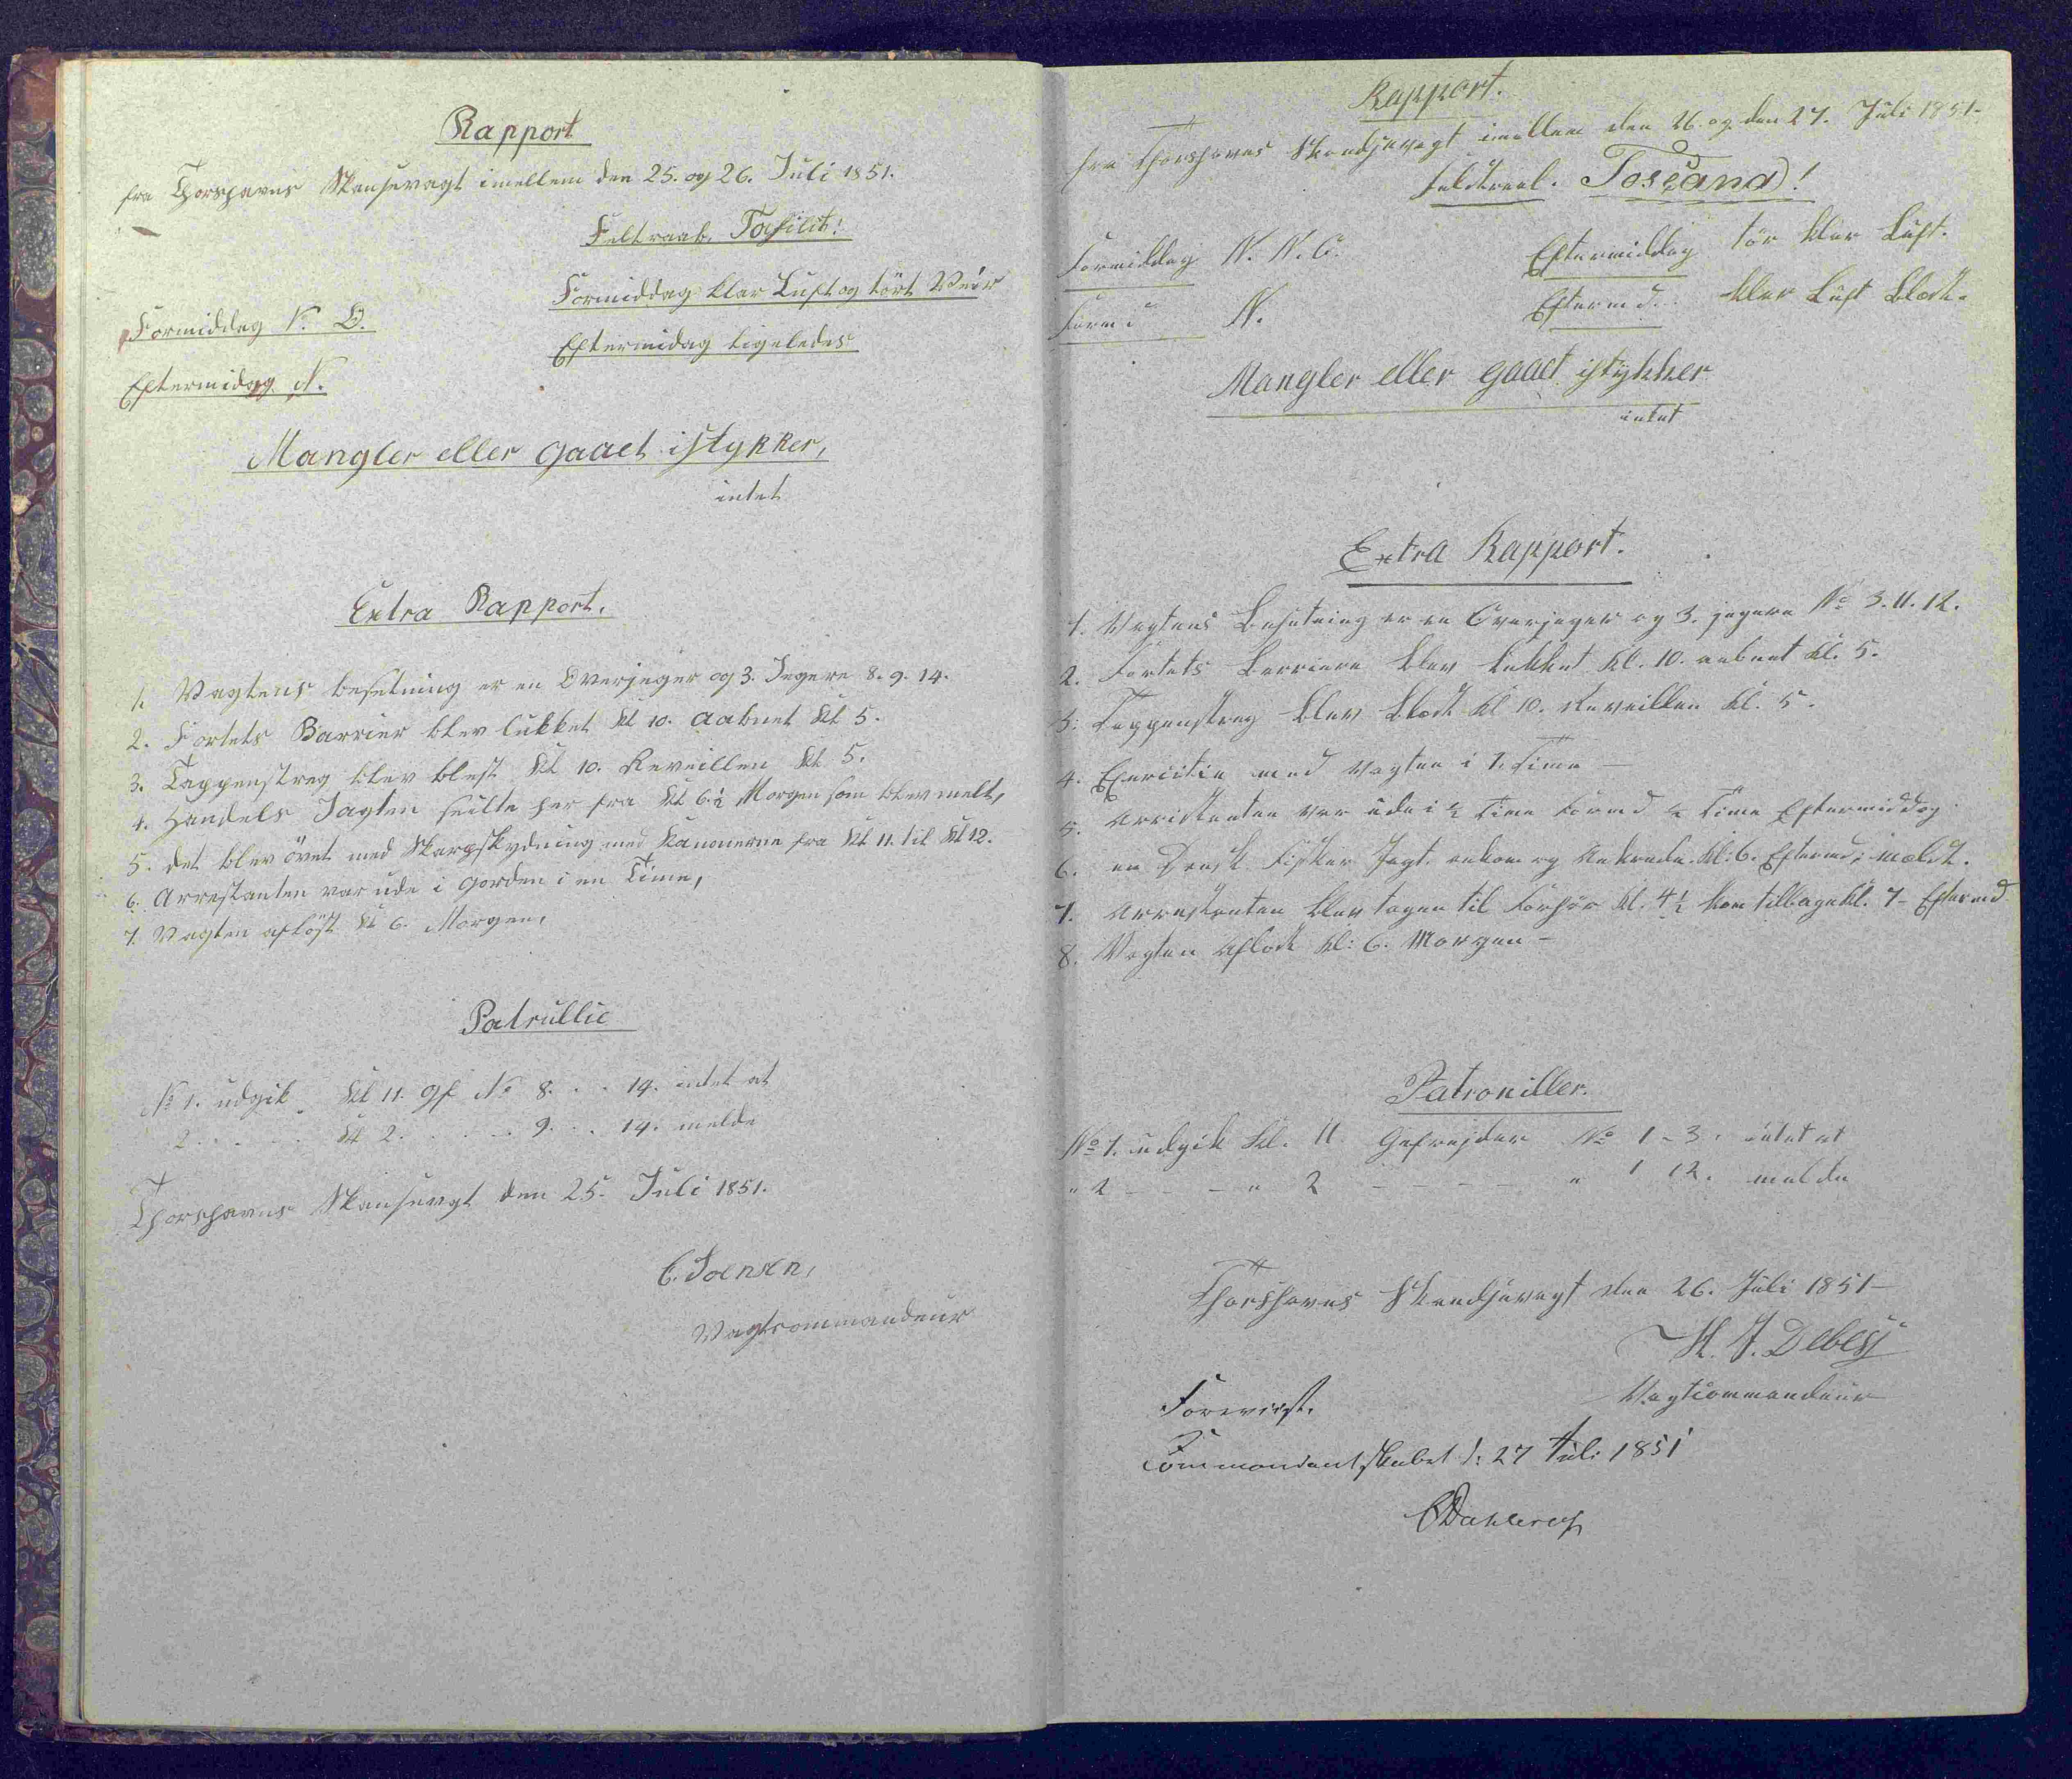 Rapport
fra Thorshavns Skansevagt imellem den 25. og 26. Juli 1851.
Feltraab.
Formiddag N. O.
Formiddag klar Luft og tört Veir
Eftermidag N.
Eftermidag ligeledes
Mangler eller gaaet istykker,
intet
Extra Rapport.
1. Vagtens besetning er en Overjeger og 3. Jegere 8. 9. 14.
2. Fortets Barrier blev lukket Kl 10. aabnet Kl 5.
3. Tappenstreg blev blest Kl 10. Reveillen Kl 5.
4. Handels Jagten seilte her fra Kl 6. i Morgen som blev melt,
5. det blev övet med Skarpskydning med Kanonerne fra Kl 11. til Kl 12.
6. Arrestanten var ude i gorden i en Time,
7. Vagten aflöst Kl 6. Morgen,
Patrullie
No 1. udgik Kl 11. gf No 8. . . 14. intet at
2. . . . . Kl 2. . . . . 9. . . 14. melde
Thorshavns Skansevagt den 25. Juli 1851.
C. Joensen,
Vagtcommandeur
Rapport.
fra Thorshavns Skandsevagt imellem den 26. og den 27. Juli 1851-
feldtraab. Toscana!
Formiddag N. N. O.
Eftermiddag tör klar Luft.
Form: N.
Efterm d.. klar Luft Blæst.
Mangler eller gaaet istykker
intet
Extra Rapport.
1. Vagtens Besetning er en Overjeger og 3. jegere No 3. 11. 12.
2. Fortets Barriere blev lukket Kl. 10. aabnet Kl. 5.
3. Tappenstreg blev blæst Kl 10. Reveillen Kl. 5.
4. Exercitie med Vagten i 1. Time -
5. Arrestanten var ude i ½ Time Formd ½ Time Eftermiddag
6. en Dansk Fisker Jagt. ankom og Ankrede. Kl: 6. Eftermd: meldt.
7. Arrestanten blev tagen til Forhör Kl. 4½ kom tilbage Kl. 7- Eftermd
8. Vagten Aflöst Kl: 6. Morgen -
Patrouiller.
No 1. udgik Kl. 11 Gefrejder No 1 - 3. intet at
" 2 - - - " 2 - - - - " 1 12. melde
Thorshavns Skandsevagt den 26. Juli 1851-
H. J. Debes
Vagtcommandeur
Forevist.
Commandantskabet d: 27 Juli 1851
CDahlerup